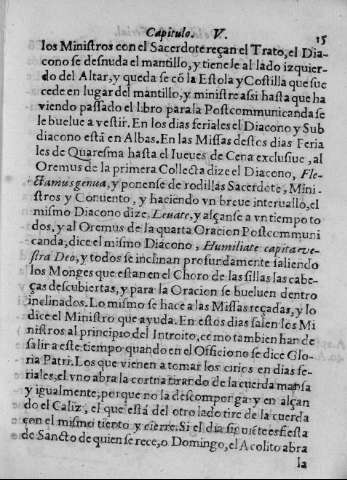 Capitulo. V. 15
los Ministros con el Sacerdote reçan el Trato, el Dia-
cono se desnuda el mantillo, y tienele al lado izquier-
do del Altar, y queda se cõ la Estola y Costilla que suc
cede en lugar del mantillo, y ministre assi hasta que ha
viendo passado el libro para la Postcommunicanda se
le buelue a vestir. En los dias feriales el Diacono y Sub
diacono està en Albas. En las Missas destos dias Feria
les de Quaresma hasta el Iueues de Cena exclusiue, al
Oremus de la primera Collecta dize el Diacono, Fle-
ctamus genua, y ponense de rodillas Sacerdote, Mini-
stros y Conuento, y haciendo vn breue interuallo, el
mismo Diacono dize. Leuate, y alçanse a vn tiempo to
dos, y al Oremus de la quarta Oracion Postcommuni
canda, dice el mismo Diacono, Humiliate capita ve-
stra Deo, y todos se inclinan profundamente saliendo
los Monges que estan en el Choro de las sillas las cabe-
ças descubiertas, y para la Oracion se bueluen dentro
inclinados. Lo mismo se hace a las Missas reçadas, y lo
dice el Ministro que ayuda. En estos dias salen los Mi
nistros al principio del Introito, como tambien han de
salir a este tiempo quando en el Officio no se dice Glo-
ria Patri. Los que vienen a tomar los cirios en dias fe-
riales, el vno abra la cortina tirando de la cuerda mansa
y igualmente, porque no la descomponga y en alçan
do el Caliz, el que està del otro lado tire de la cuerda
con el mismo tiento y cierre. Si el dia siguiẽte es fiesta
de Sancto de quien se rece, o Domingo, el Acolito abra
la